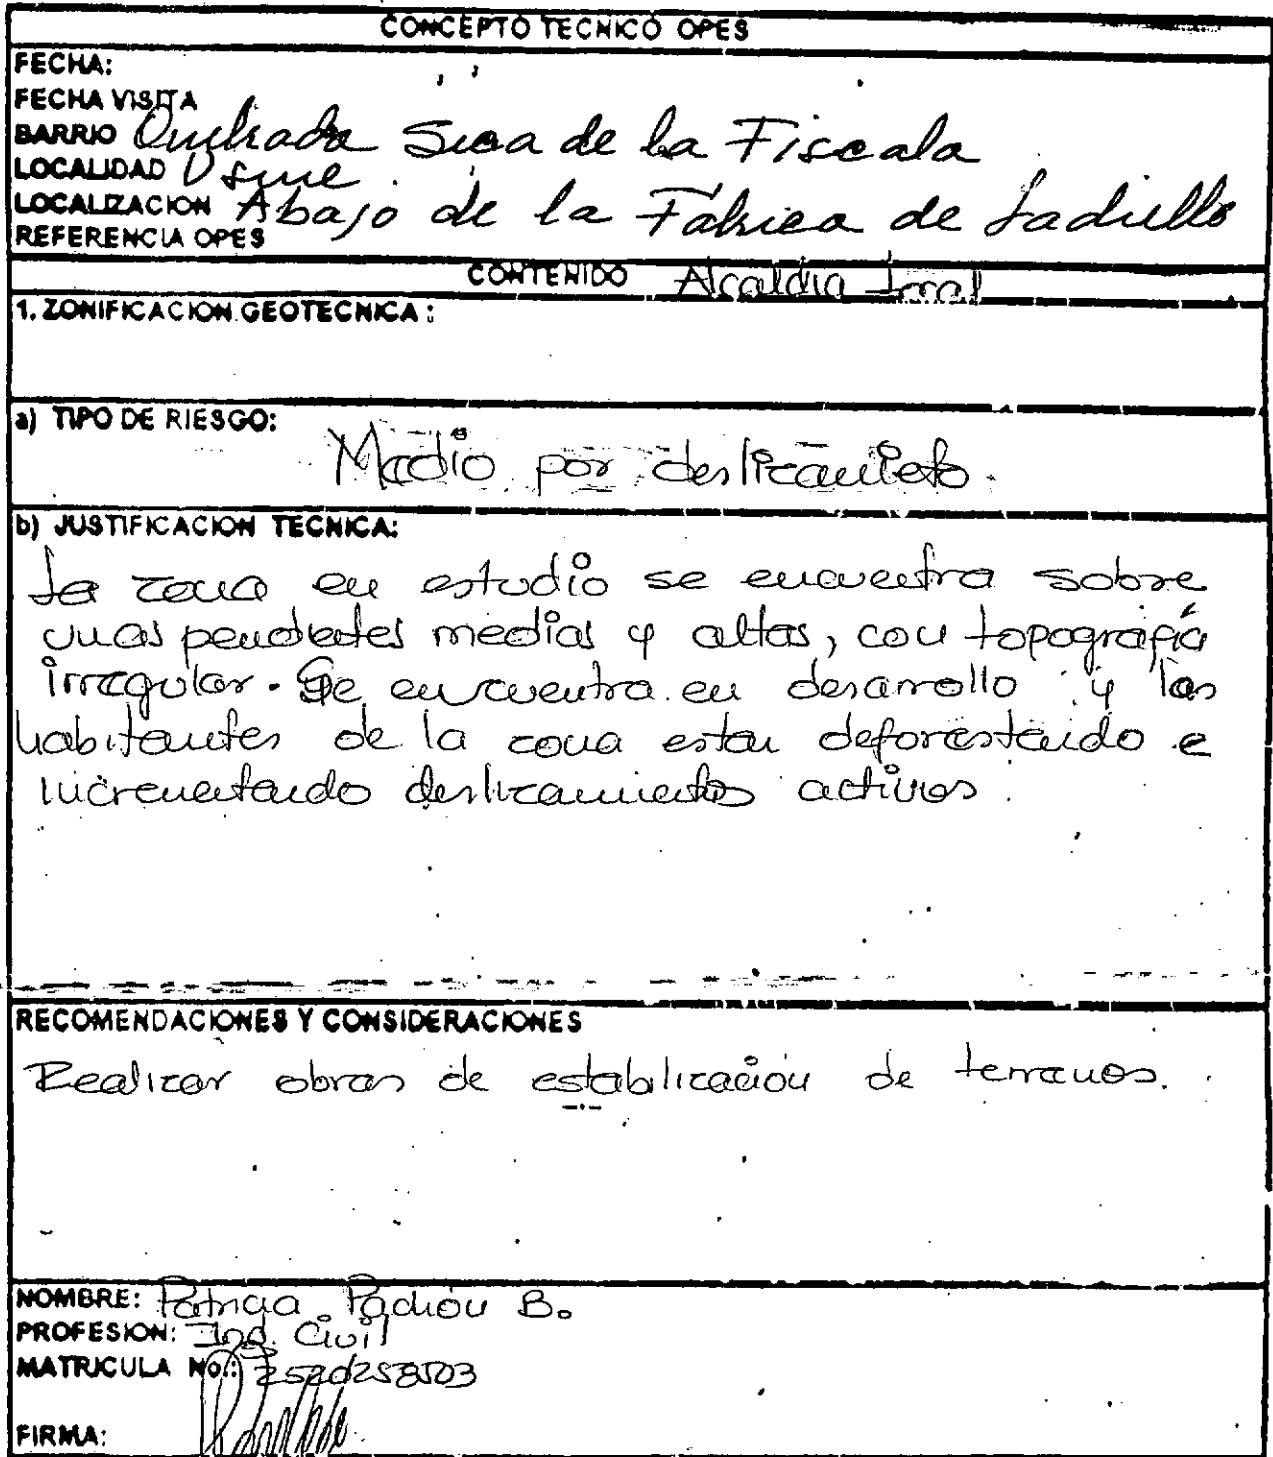 CONCEPTO TECNICO OPES
FECHA:
FECHA VISITA
BARRIO Quebrada Seca de la Fiscala
LOCALIDAD Usme.
LOCALIZACION Abajo de la Fabrica de Ladrillo
REFERENCIA OPES
CONTENIDO Alcaldia Local
1. ZONIFICACION GEOTECNICA:
a) TIPO DE RIESGO:
Medio por deslizamiento.
b) JUSTIFICACION TECNICA:
La zona en estudio se encuentra sobre
unas pendientes medias y altas, con topografía
irregular. Se encuentra en desarrollo y los
habitantes de la zona estan deforestando e
incrementando deslizamientos activos.
RECOMENDACIONES Y CONSIDERACIONES
Realizar obras de estabilización de terrenos.
NOMBRE: Patricia B.
PROFESION: Ing. Civil
MATRICULA No.:
FIRMA: